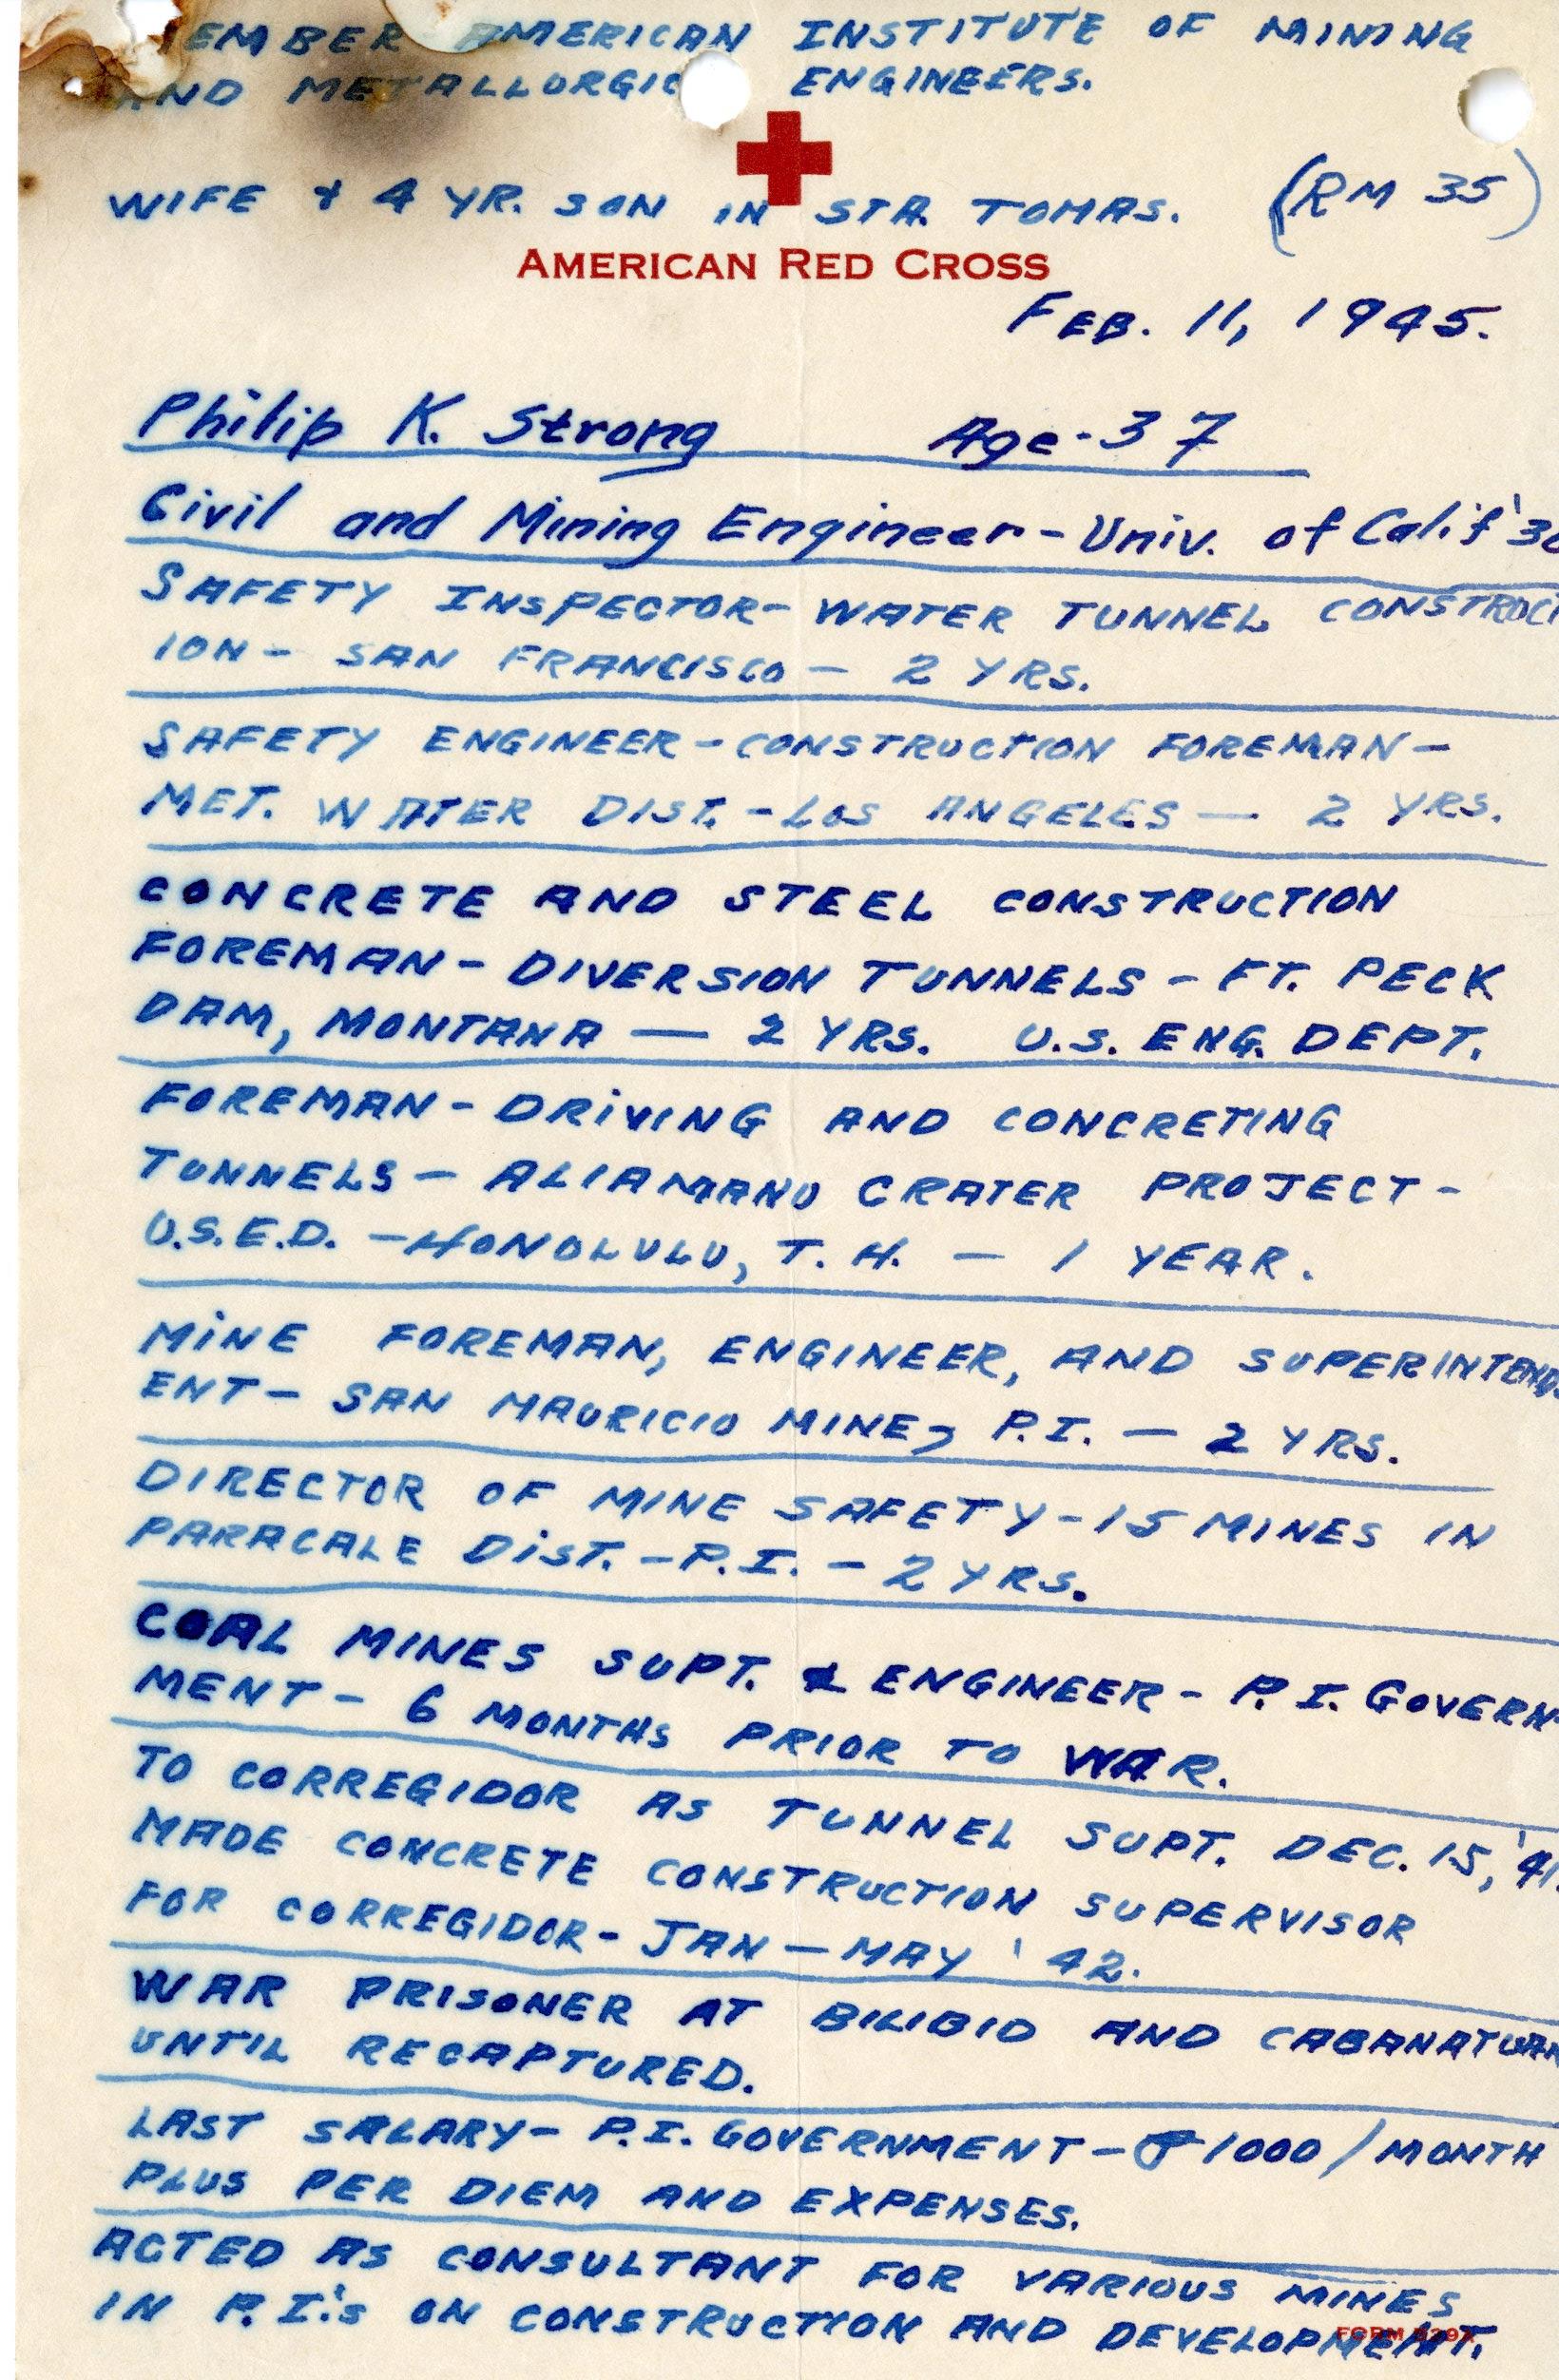 EMBER AMERICAN INSTITUTE OF MINING
AND METALLORGIC ENGINEERS.
WIFE & 4 YR. SON IN STA. TOMAS. (RM 35)
AMERICAN RED CROSS
FEB. 11, 1945.
Philip K. Strong Age-37
Civil and Mining Engineer-Univ. of Calif '30
SAFETY INSPECTOR- WATER TUNNEL CONSTRUCT
ION- SAN FRANCISCO - 2 YRS.
SAFETY ENGINEER-CONSTRUCTION FOREMAN-
MET. WATER DIST.-LOS ANGELES - 2 YRS.
CONCRETE AND STEEL CONSTRUCTION
FOREMAN- DIVERSION TUNNELS - FT. PECK
DAM, MONTANA - 2 YRS. U.S. ENG. DEPT.
FOREMAN- DRIVING AND CONCRETING
TUNNELS- ALIAMANU CRATER PROJECT-
U.S.E.D. -HONOLULU, T. H. - 1 YEAR.
MINE FOREMAN, ENGINEER, AND SUPERINTEND
ENT- SAN MAURICIO MINE, P.I. - 2 YRS.
DIRECTOR OF MINE SAFETY-15 MINES IN
PARACALE DIST. -P.I. - 2 YRS.
COAL MINES SUPT. & ENGINEER- P.I. GOVERN-
MENT- 6 MONTHS PRIOR TO WAR.
TO CORREGIDOR AS TUNNEL SUPT. DEC. 15, '41.
MADE CONCRETE CONSTRUCTION SUPERVISOR
FOR CORREGIDOR- JAN - MAY '42.
WAR PRISONER AT BILIBID AND CABANATUAN
UNTIL RECAPTURED.
LAST SALARY- P.I. GOVERNMENT-₱1000/MONTH
PLUS PER DIEM AND EXPENSES.
ACTED AS CONSULTANT FOR VARIOUS MINES
IN P.I.'s ON CONSTRUCTION AND DEVELOPMENT.
FORM